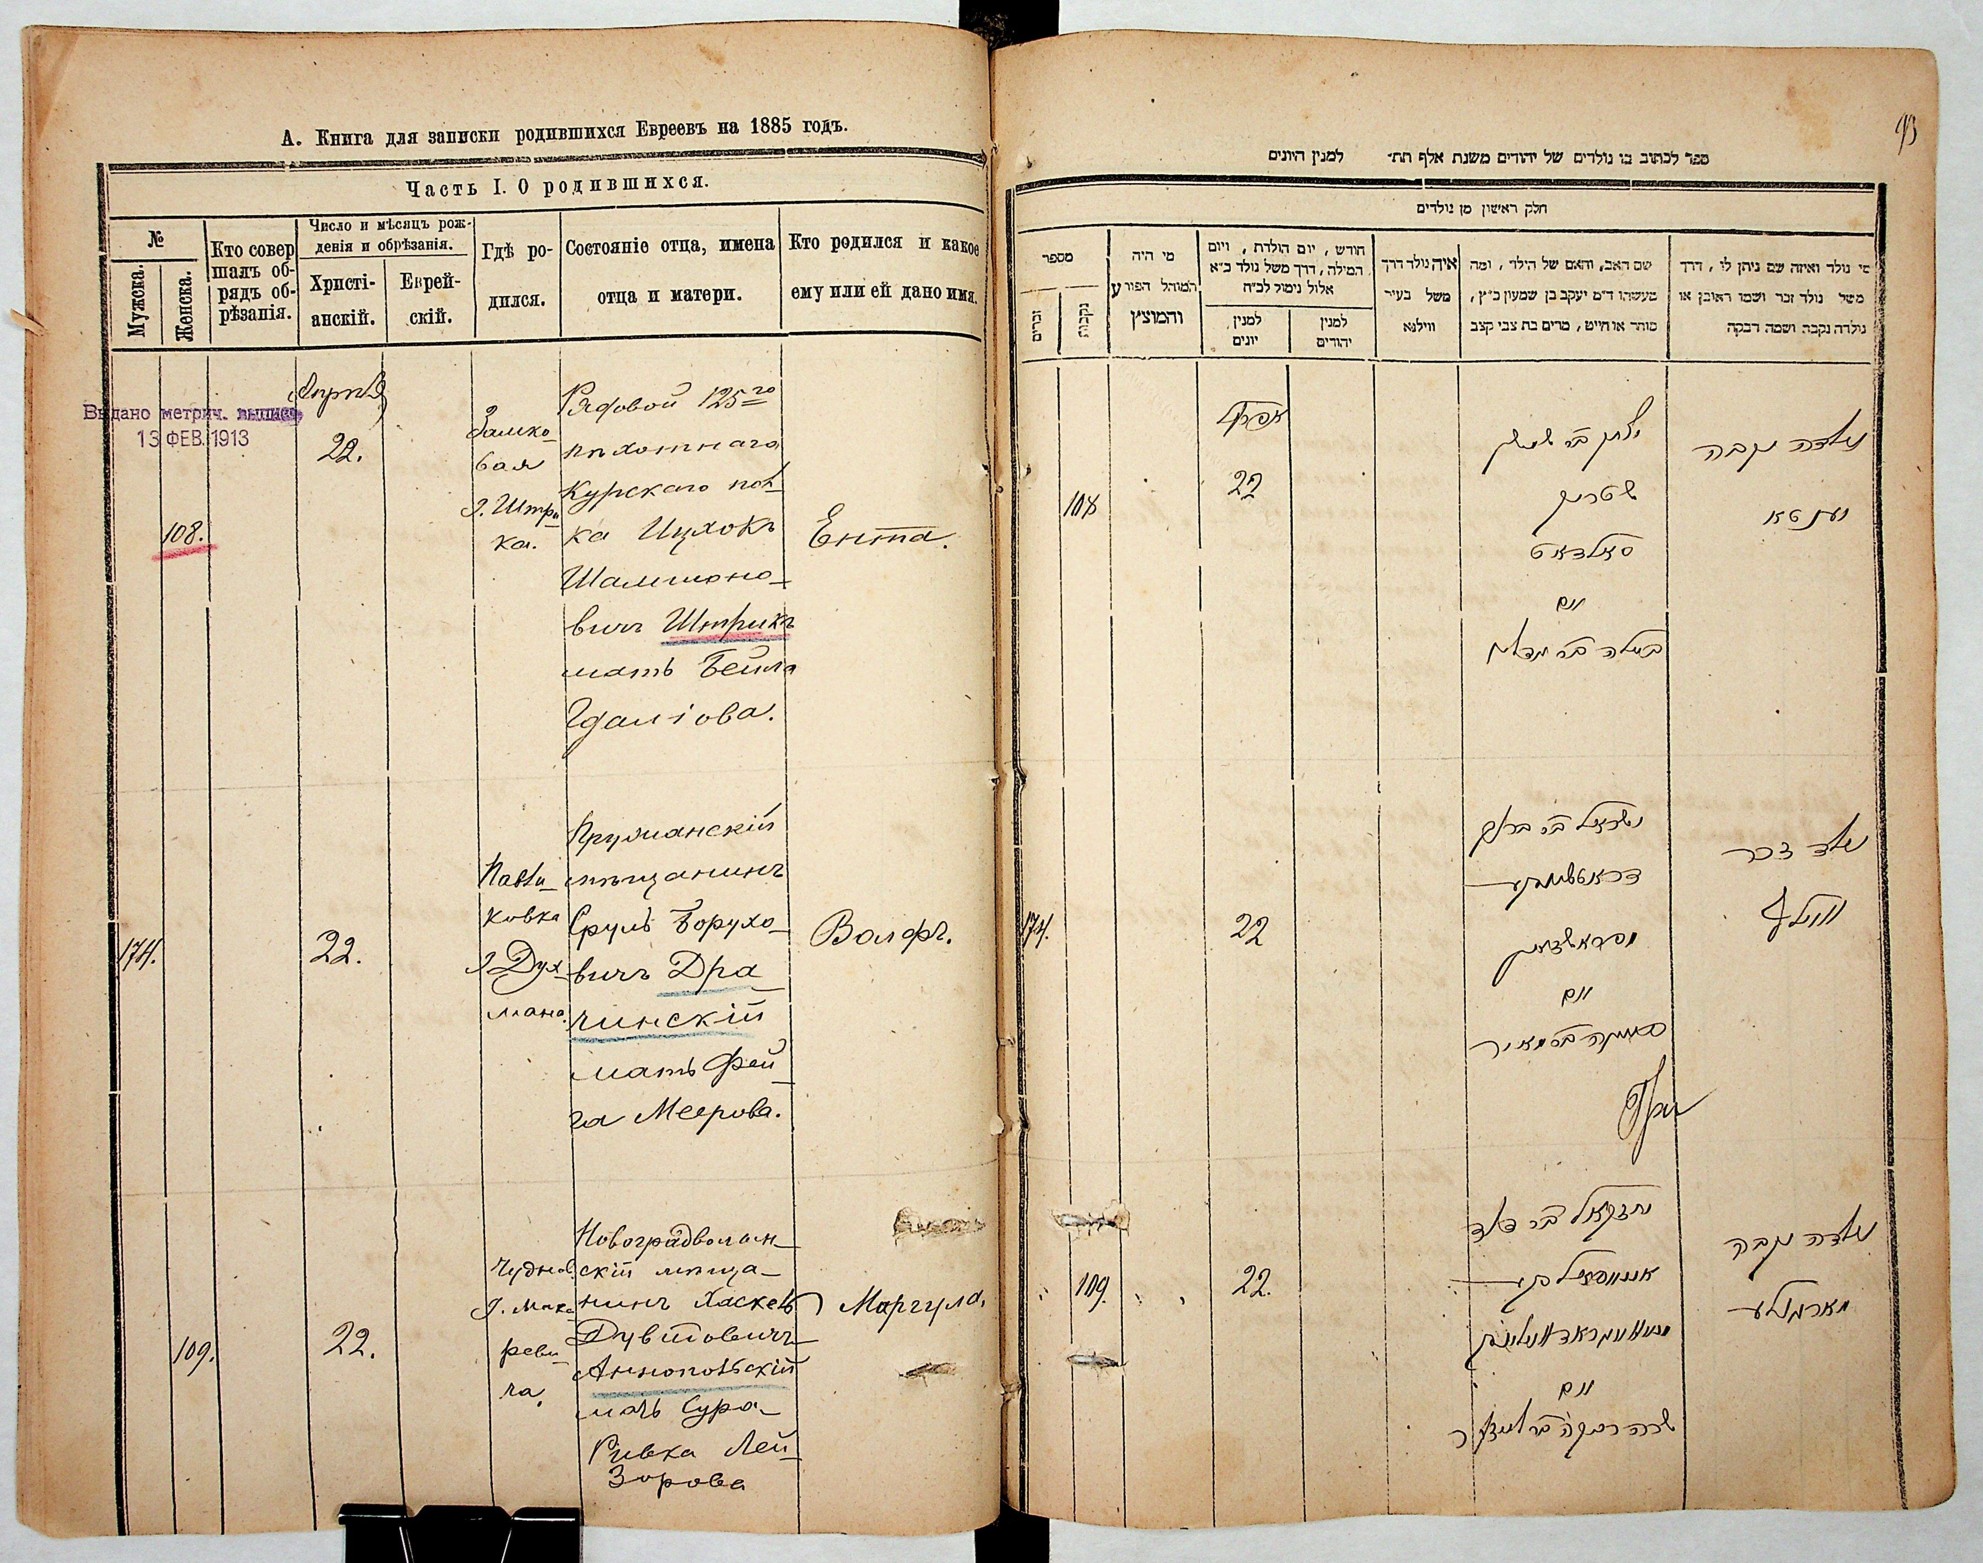 А. Книга для записки родившихся Евреевъ на 1885 годъ.
Часть I. О родившихся.
№
Мужска.
Женска.
Кто совер
шалъ об-
рядъ об-
рѣзанія.
Число и мѣсяцъ рож-
денія и обрѣзанія.
Христі-
анскій.
Еврей-
скій.
Гдѣ ро-
дился.
Состояніе отца, имена
отца и матери.
Кто родился и какое
ему или ей дано имя.
Выдано метрич.
13 ФЕВ. 1913
108.
22.
Замко-
вая
Рядовой 125го
пѣхотнаго
Курскаго пол-
ка Ицхокъ
Шамшоно-
вичъ Штрикъ
мать Бейла
Гдаліова.
Ента.
174.
22.
ковка
д. Дух-
мана.
Пружанскій
мѣщанинъ
Сруль Борухо-
вичъ Дра-
чинскій
мать Фей-
га Меерова.
Волфъ.
109.
22.
Чуднов.
Новоградволын-
скій мѣща-
нинъ Хаскель
Дувидовичъ
Аннопольскій
мать Сура-
Ривка Лей-
Зорова
Маргула.
93
ספר לכתוב בו נולדים של יהודים משנת אלף תת״ למנין היונים
חלק ראשון מן נולדים
מספר
זכרים
נקבות
מי היה
המוהל הפורע
והמוצץ
חודש, יום הולדת, ויום
המילה, דרך משל נולד כ״א
אלול נימול לכ״ח
למנין
יונים
למנין
יהודים
איה נולד דרך
משל בעיר
ווילנא
שם האב, והאם של הילד, ומה
מעשהו ד״מ יעקב בן שמעון כ״ץ,
סוחר או חייט, מרים בת צבי קצב
מי נולד ואיזה שם ניתן לו, דרך
משל נולד זכר ושמו ראובן או
נולדה נקבה ושמה דבקה
108
אפריל
22
יצחק בר שמשון
שטריק
סאלדאט
ואם
ביילה בר גדליה
נולדה נקבה
יענטא
174.
22
ישראל בר ברוך
ואם
נולד זכר
וואלף
109.
22.
יחזקאל בר דוד
ואם
שרה רבקה בר אליעזר
נולדה נקבה